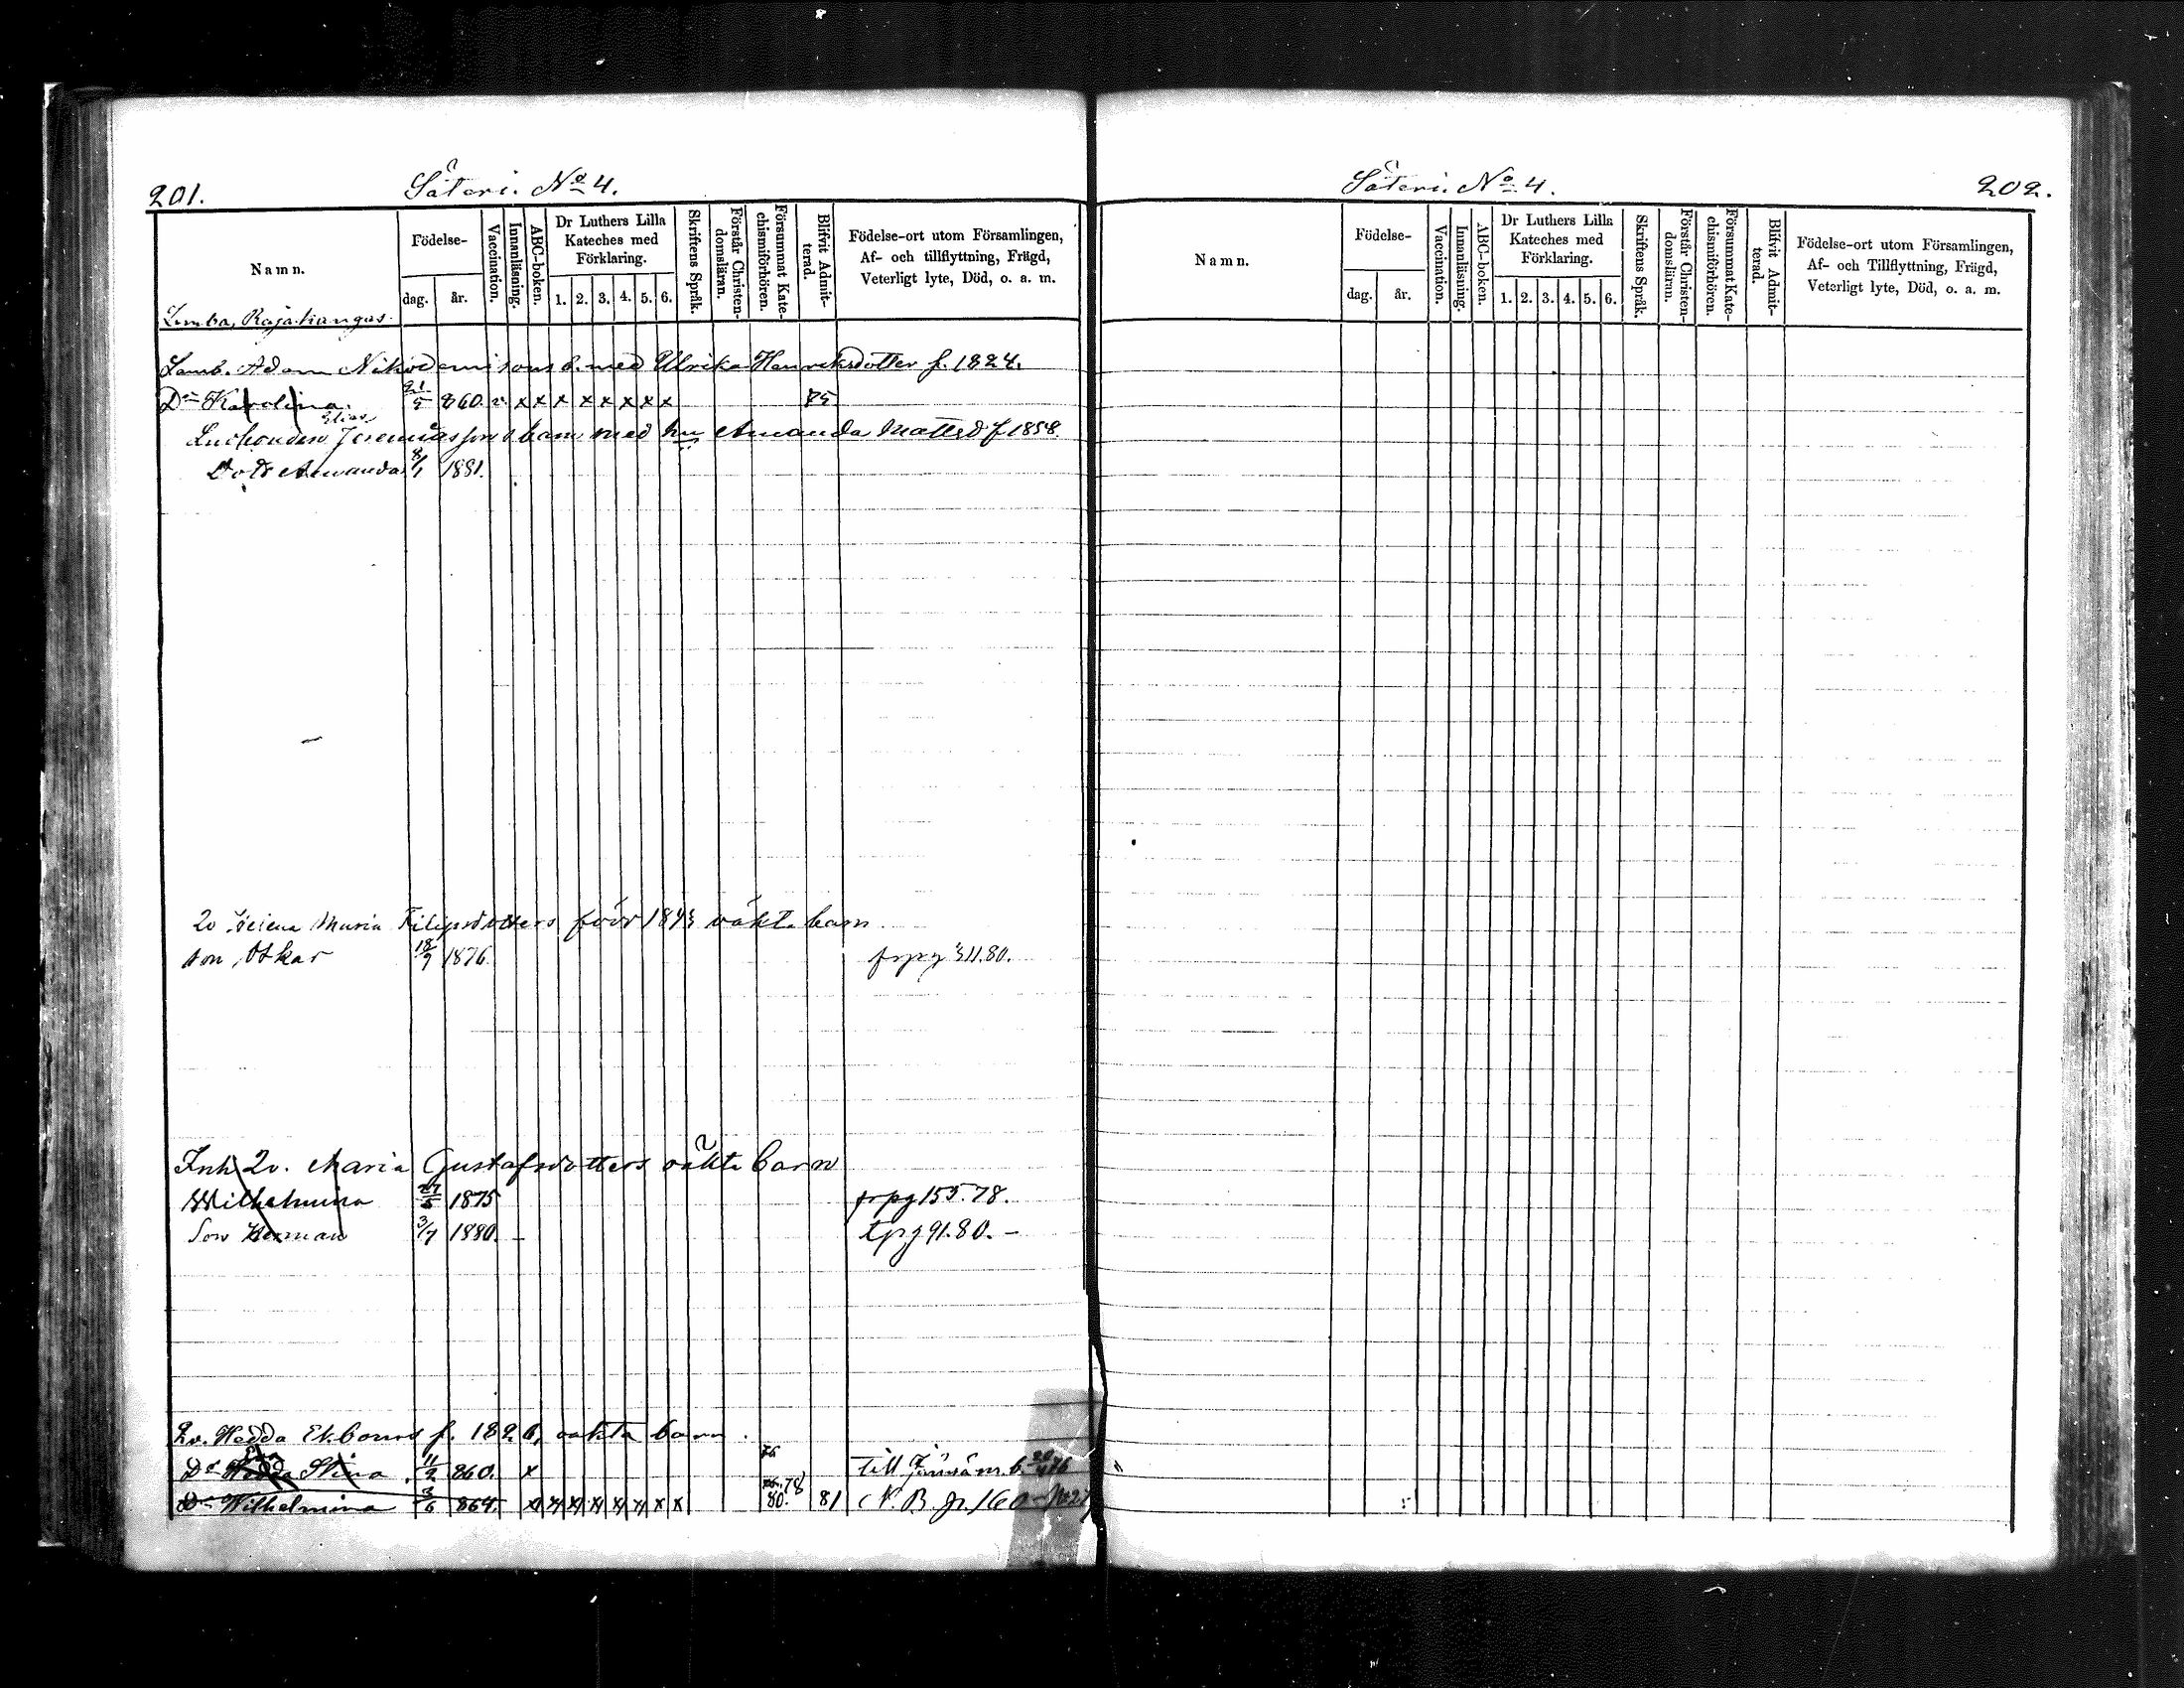 201. Såteri. No 4.
Namn.
Födelse-
dag. år.
Vaccination.
Innanläsning.
ABC-boken.
Dr Luthers Lilla Kateches med Förklaring.
1. 2. 3. 4. 5. 6.
Skriftens Språk.
Förstår Christendomsläran.
Försummat Katechismiförhören.
Blifvit Admitterad.
Födelse-ort utom Församlingen,
Af- och tillflyttning, Frägd,
Veterligt lyte, Död, o. a. m.
Lemba, Rajakangas
Lamb. Adam Nikodemisons b. med Ulrika Henriksdotter f. 1824.
Dr Karolina 21/5 860. v. x x x x x x x x 75
Elias
Jeremiassons barn med hu Amanda Mattsd f 1858.
Dotr Amanda 8/1 1881.
Maria Filipsdotters oäkta barn
son Oskar 18/9 1876. frpg 311.80.
Inh. Qv. Maria Gustafsdotters oäkta barn
Wilhelmina 27/5 1875 frpg 155.78.
Son Herman 3/7 1880. – tpg 91.80. –
Qv. Hedda Ekboms f. 1826, oakta barn.
Dr Stina 11/2 860. x 76 Till
Dr Wilhelmina 3/6 864. x x x x x x x x 78 80. 81 N. B. p. 160
Såteri. No 4. 202.
Namn.
Födelse-
dag. år.
Vaccination.
Innanläsning.
ABC-boken.
Dr Luthers Lilla Kateches med Förklaring.
1. 2. 3. 4. 5. 6.
Skriftens Språk.
Förstår Christendomsläran.
Försummat Katechismiförhören.
Blifvit Admitterad.
Födelse-ort utom Församlingen,
Af- och Tillflyttning, Frägd,
Veterligt lyte, Död, o. a. m.